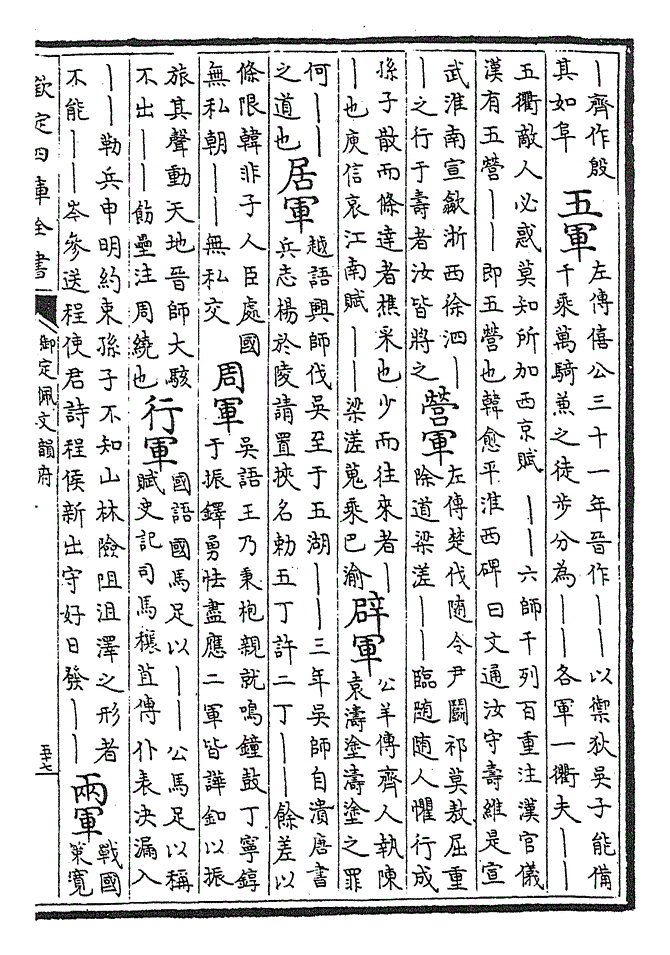 丨齊作殷
其如阜
五軍
左傳僖公三十一年晉作丨丨以禦狄吳子能備
千乘萬騎兼之徒步分為丨丨各軍一衢夫丨丨
五衢敵人必惑莫知所加西京賦丨丨六師千列百重注漢官儀
漢有五營丨丨即五營也韓愈平淮西碑曰文通汝守壽維是宣
武淮南宣歙浙西徐泗丨
丨之行于壽者汝皆將之
營軍
左傳楚伐随令尹鬭祁莫敖屈重
除道梁溠丨丨臨随随人懼行成
孫子散而條達者樵采也少而往來者丨
丨也庾信哀江南賦丨丨梁溠蒐乘巴渝
辟軍
公羊傳齊人執陳
袁濤塗濤塗之罪
何丨丨
之道也
居軍
越語興師伐吳至于五湖丨丨三年吳師自潰唐書
兵志楊於陵請置挾名勅五丁許二丁丨丨餘差以
條限韓非子人臣處國
無私朝丨丨無私交
周軍
吳語王乃秉枹親就鳴鐘鼓丁寧錞
于振鐸勇怯盡應二軍皆譁釦以振
旅其聲動天地晉師大駭
不出丨丨飭壘注周繞也
行軍
國語國馬足以丨丨公馬足以稱
賦史記司馬穰苴傳仆表決漏入
丨丨勒兵申明約束孫子不知山林險阻沮澤之形者
不能丨丨岑參送程使君詩程侯新出守好日發丨丨
兩軍
戰國
策寬
欽定四庫全書
御定佩文韻府
五十七